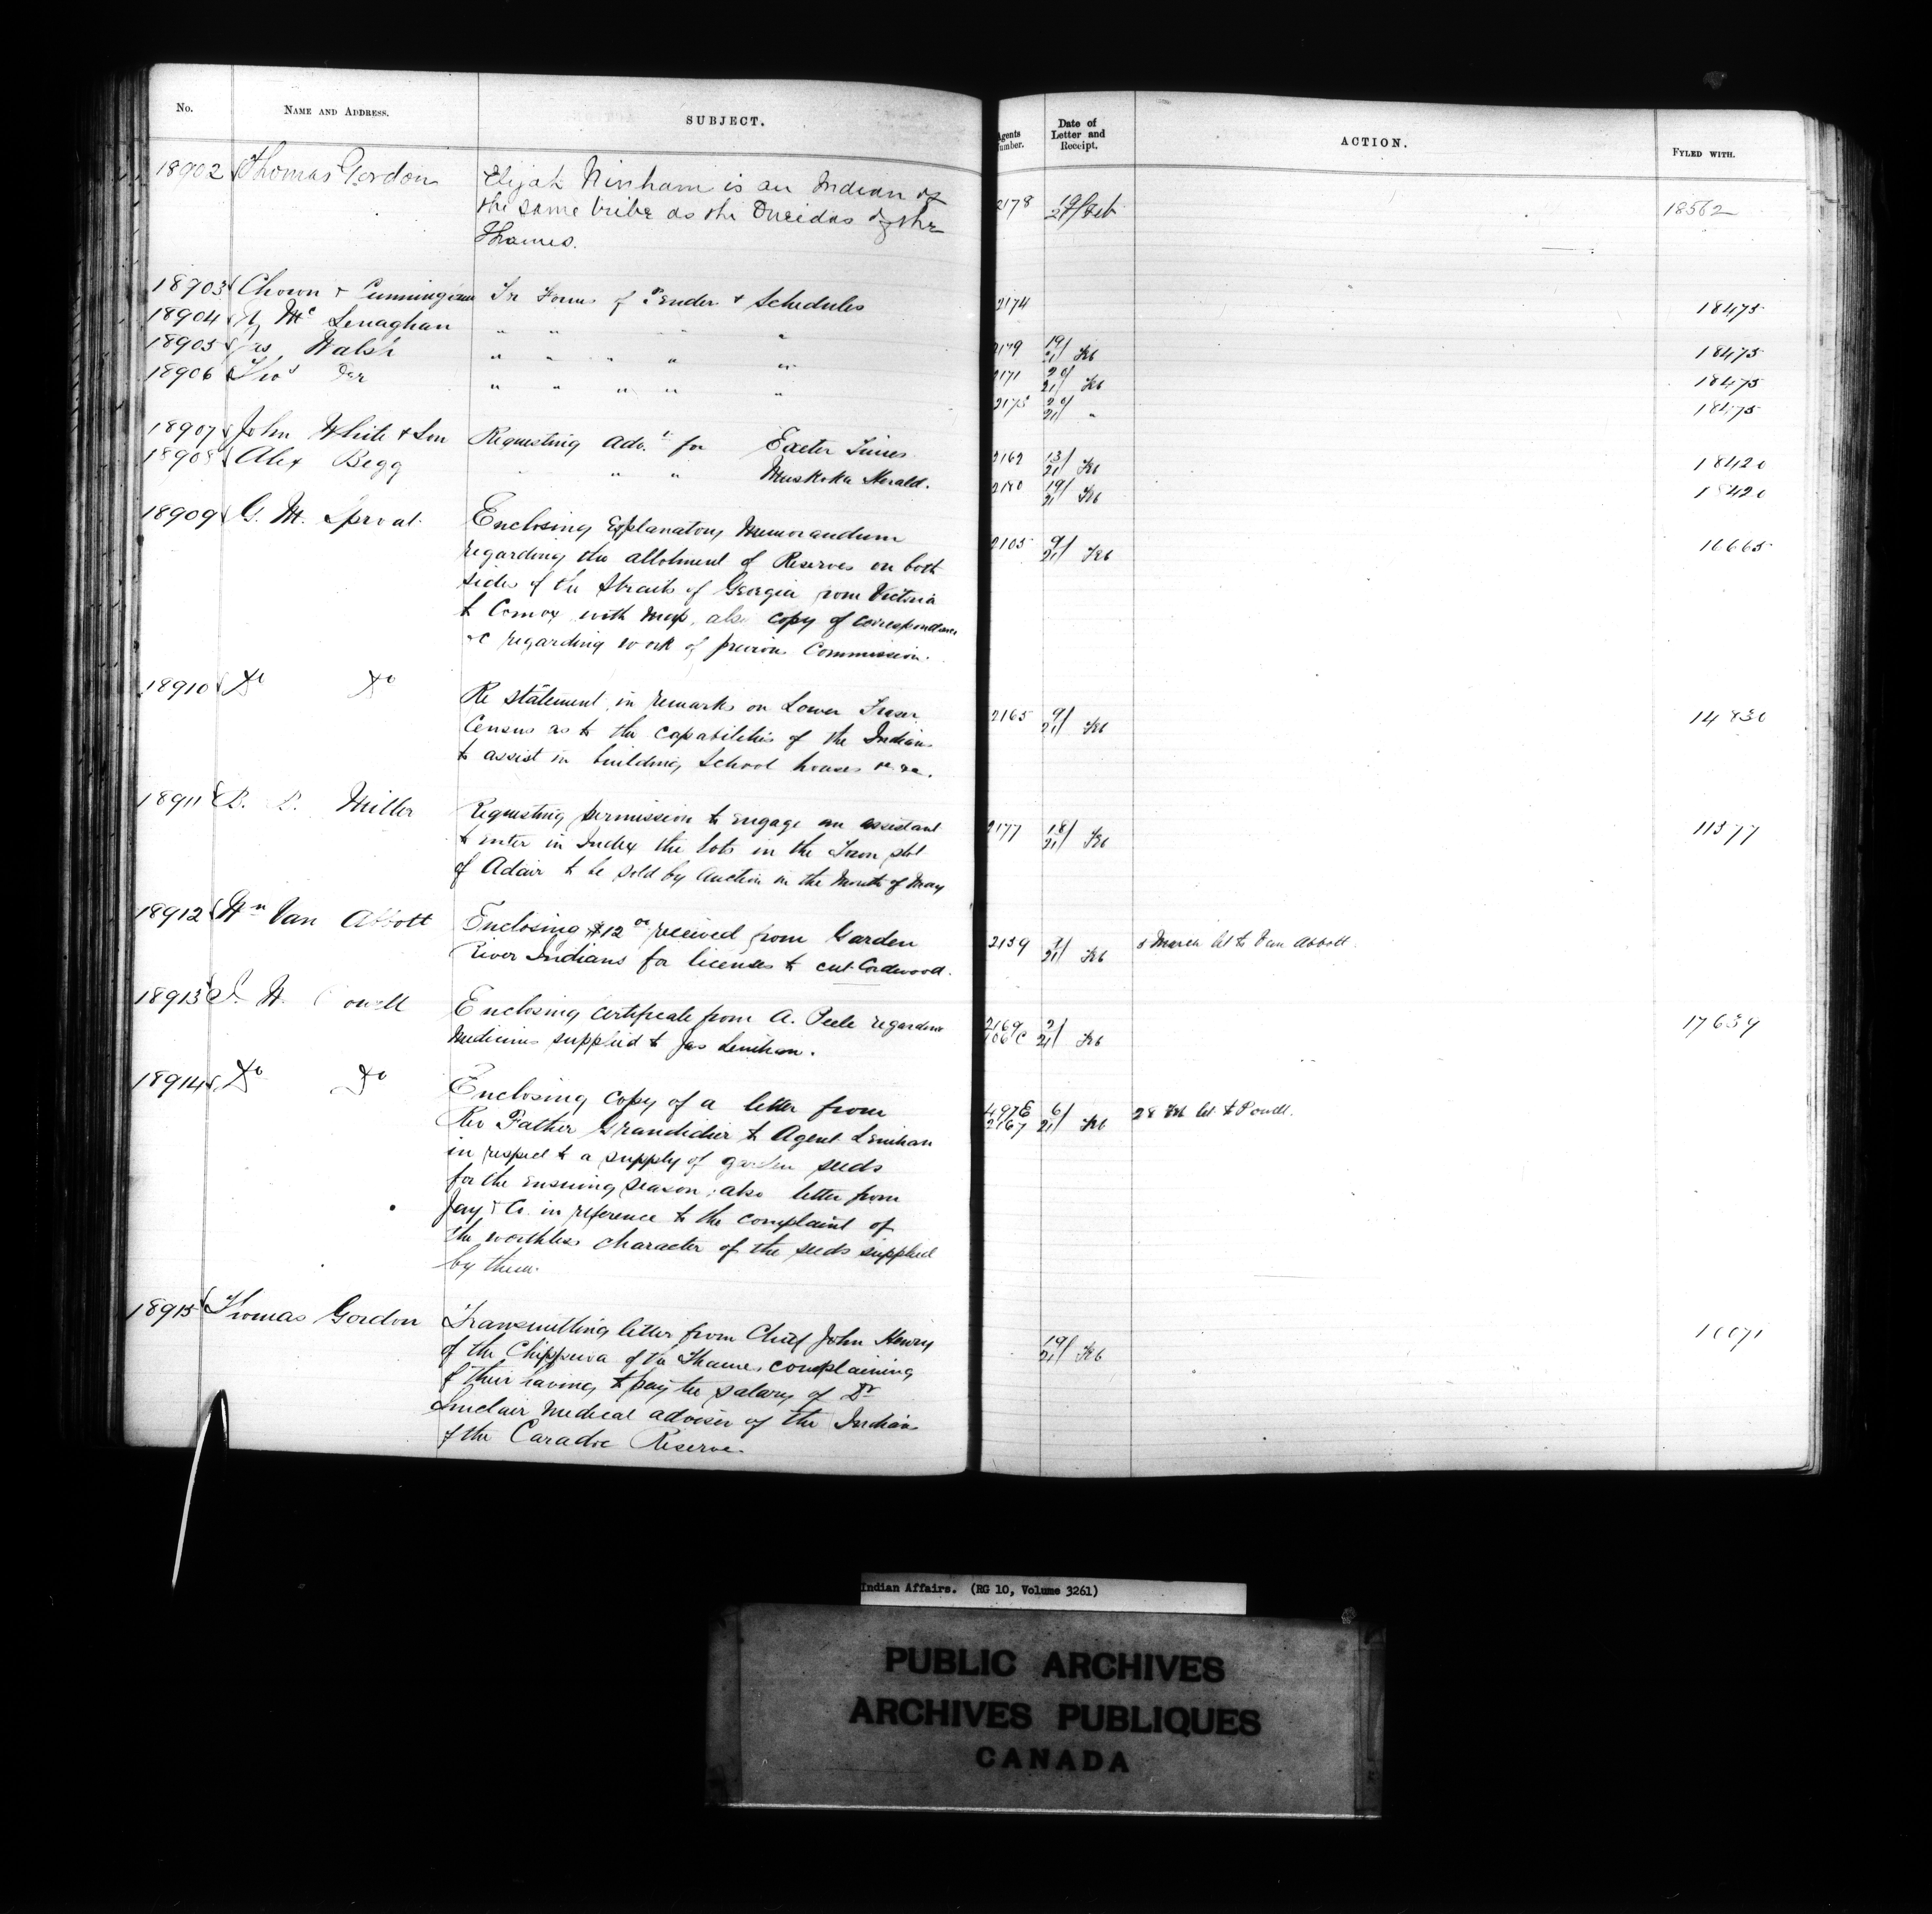 No. NAME AND ADDRESS. SUBJECT. Agents Number. Date of Letter and Receipt. ACTION. FYLED WITH.
18902 Thomas Gordon Elijah Ninham is an Indian of 2178 19/21 Feb 18562
the same tribe as the Oneidas of the
Thames.
18903 Chown & Cunningham Fr Forms of Tender & Schedules 2174 18475
18904 Mc Lenaghan " " " " " 2179 19/21 Feb 18475
18905 Jas Walsh " " " " " 2171 20/21 Feb 18475
18906 Thos " " " " " 2175 20/21 " 18475
18907 John White & Son Requesting Advt for Exeter Times 2162 13/21 Feb 18420
18908 Alex Begg " " " Muskoka Herald. 2180 19/21 Feb 18420
18909 G. M. Sproat Enclosing Explanatory Memorandum 2105 9/21 Feb 10665
regarding the allotment of Reserves on both
sides of the Straits of Georgia from Victoria
to Comox with map, also copy of correspondence
&c regarding work of previous Commission.
18910 Do Do Re statement in remarks on Lower Fraser 2165 9/21 Feb 14830
Census as to the capabilities of the Indians
to assist in building School houses &c &c.
18911 B. Miller Requesting permission to engage an assistant 2177 18/21 Feb 11377
to enter in Index the lots in the Town plot
of Adair to be sold by Auction in the Month of May
18912 Wm Van Abbott Enclosing $12 00 received from Garden 2159 21 Feb 5 March let to Van Abbott.
River Indians for licenses to cut Cordwood.
18913 I. W. Powell Enclosing Certificate from A. Peele regarding 2169 106 C 2/21 Feb 17639
Medicines supplied to Jas Lenihan.
18914 Do Do Enclosing copy of a letter from 497E 2167 6/21 Feb 28 Feb let to Powell.
Rev Father Grandidier to Agent Lenihan
in respect to a supply of garden seeds
for the ensuing season, also letter from
Jay & Co. in reference to the complaint of
the worthless character of the seeds supplied
by them.
18915 Thomas Gordon Transmitting letter from Chief John Henry 19/21 Feb
of the Chippewa of the Thames complaining
of their having to pay the salary of Dr
Sinclair Medical adviser of the Indians
of the Caradoc Reserve.
Indian Affairs. (RG 10, Volume 3261)
PUBLIC ARCHIVES
ARCHIVES PUBLIQUES
CANADA